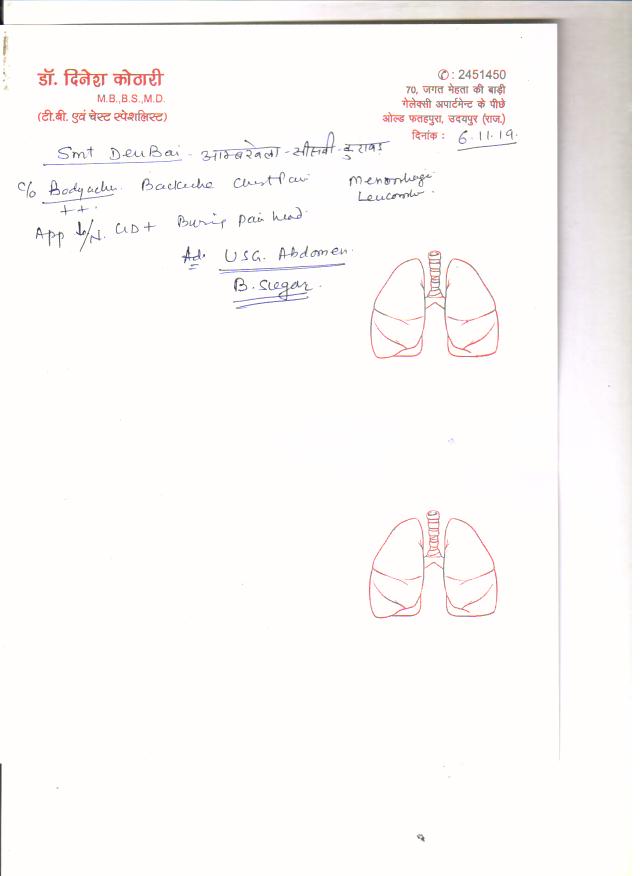 डॉ. दिनेश कोठारी
M.B.,B.S.,M.D.
(टी.बी. एवं चेस्ट स्पेशलिस्ट)
✆: 2451450
70, जगत मेहता की बाड़ी
गेलेक्सी अपार्टमेन्ट के पीछे
ओल्ड फतहपुरा, उदयपुर (राज.)
दिनांक : 6.11.19.
Smt Deu Bai - - कुराबड़
c/o Bodyache. Backache Chest Pain Menorrhagi
++.
App Pain head.
Ad. USG. Abdomen.
B. Sugar.